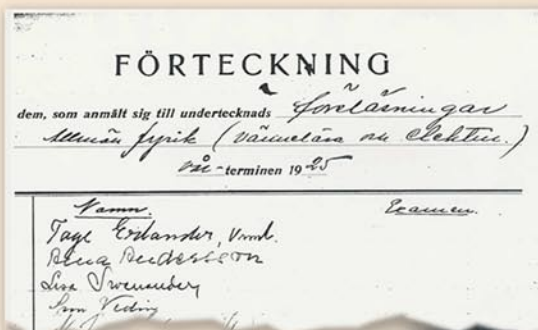 FÖRTECKNING
å
dem, som anmält sig till undertecknads föreläsningar
Allmän fysik (värmelära och elektric.)
vår-terminen 1925
Namn. Examen.
Tage Erlander, Vrml.
Aina Andersson
Lisa Swenander